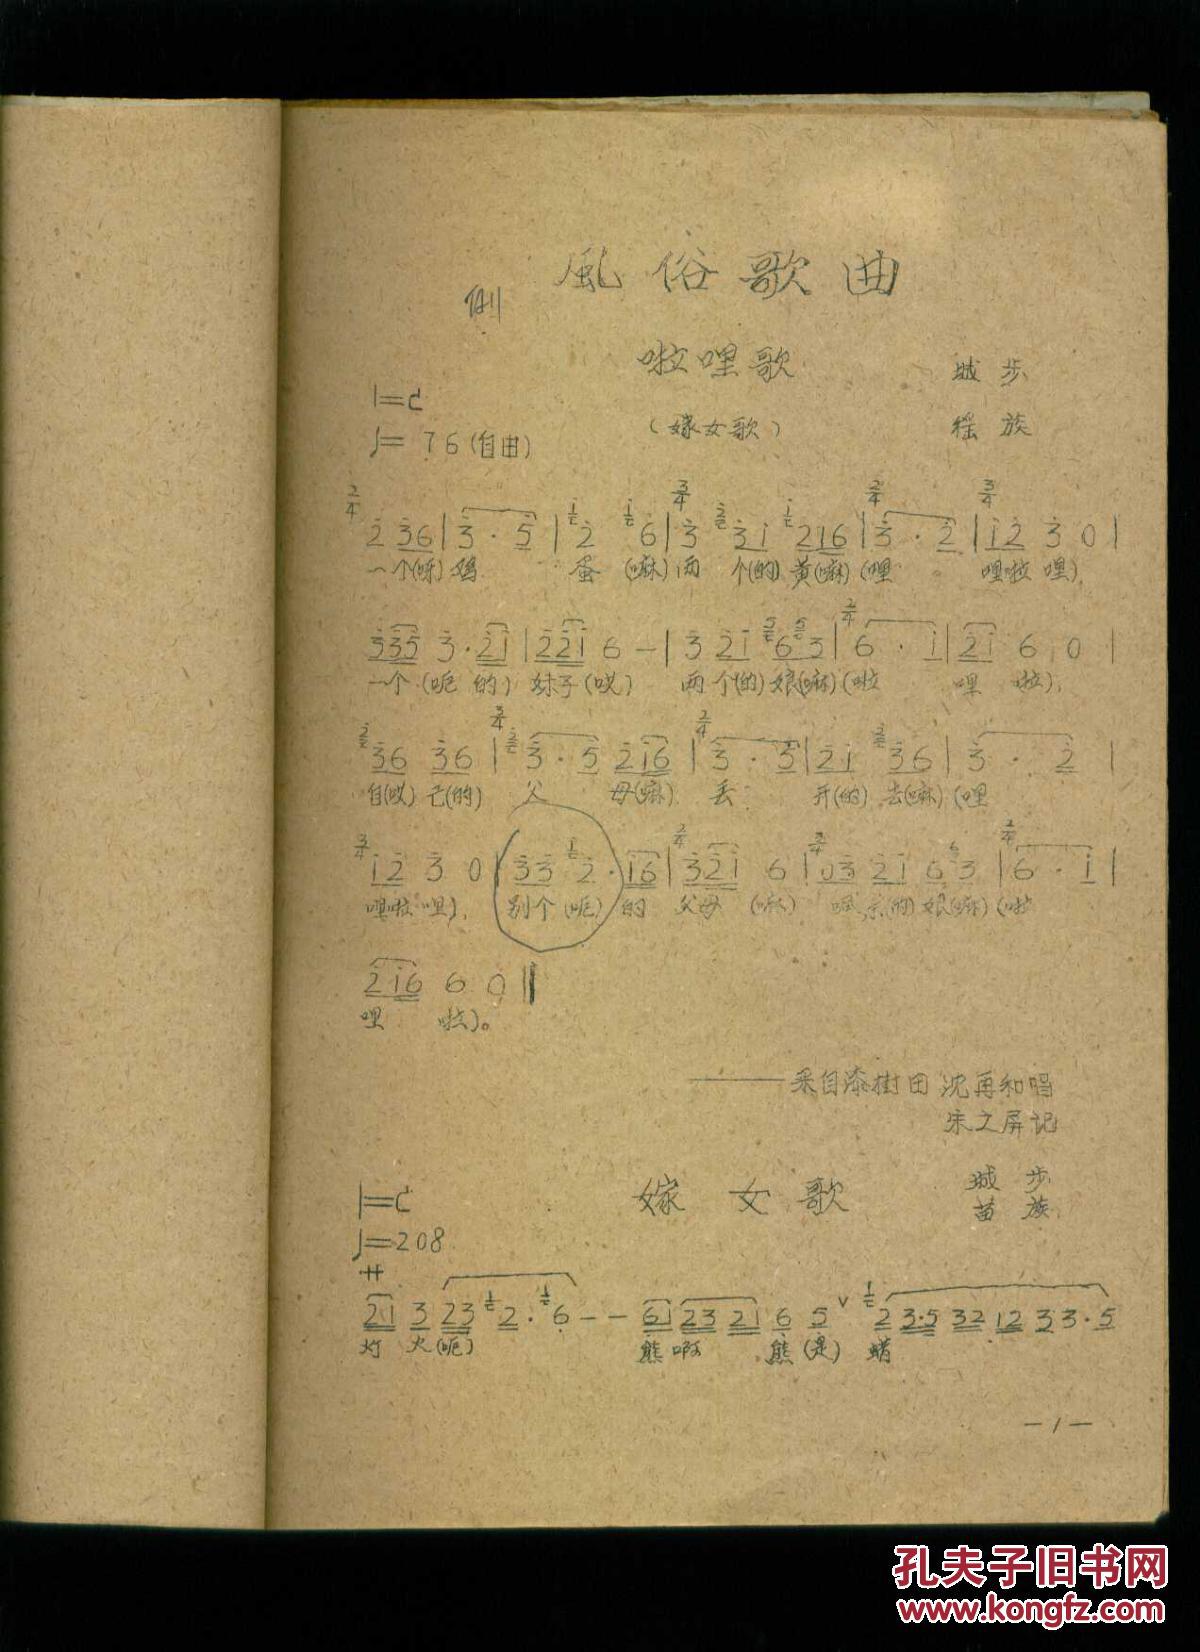 風俗歌曲
例
啦哩歌
城步
1=C
（嫁女歌）
徭族
♩=76(自由)
2/4 2 36|3·5|2 6|3/4 3 31 216|2/4 3·2|3/4 12 3 0|
一个(呀)鸡 蛋 (嘛)两 个(的)黄(嘛)(哩 哩啦哩)
335 3·21|221 6 -|3 21 63|2/4 6·1|21 6 0|
一个(呃的)妹子(哎) 两个(的)娘(嘛)(啦 哩 啦),
36 36|3/4 3·5 216|2/4 3·5|21 36|3·2|
自(哎)己(的) 父 母(嘛) 丢 开(的)去(嘛)(哩
3/4 12 3 0|33 2·16|2/4 321 6|3/4 03 21 63|2/4 6·1|
哩啦哩), 别个(呃)的 父母 (嘛) (的)娘(嘛)(啦
216 6 0‖
哩 啦)。
——采自漆樹田 沈再和唱
朱之屏记
1=C
嫁女歌
城步
苗族
♩=208
サ
21 3 23 2·6-- 61 23 21 6 5 ∨ 2 3·5 32 12 33·5
灯 火(呃) 熊啊 熊(是) 蜡
—1—
孔夫子旧书网
www.kongfz.com